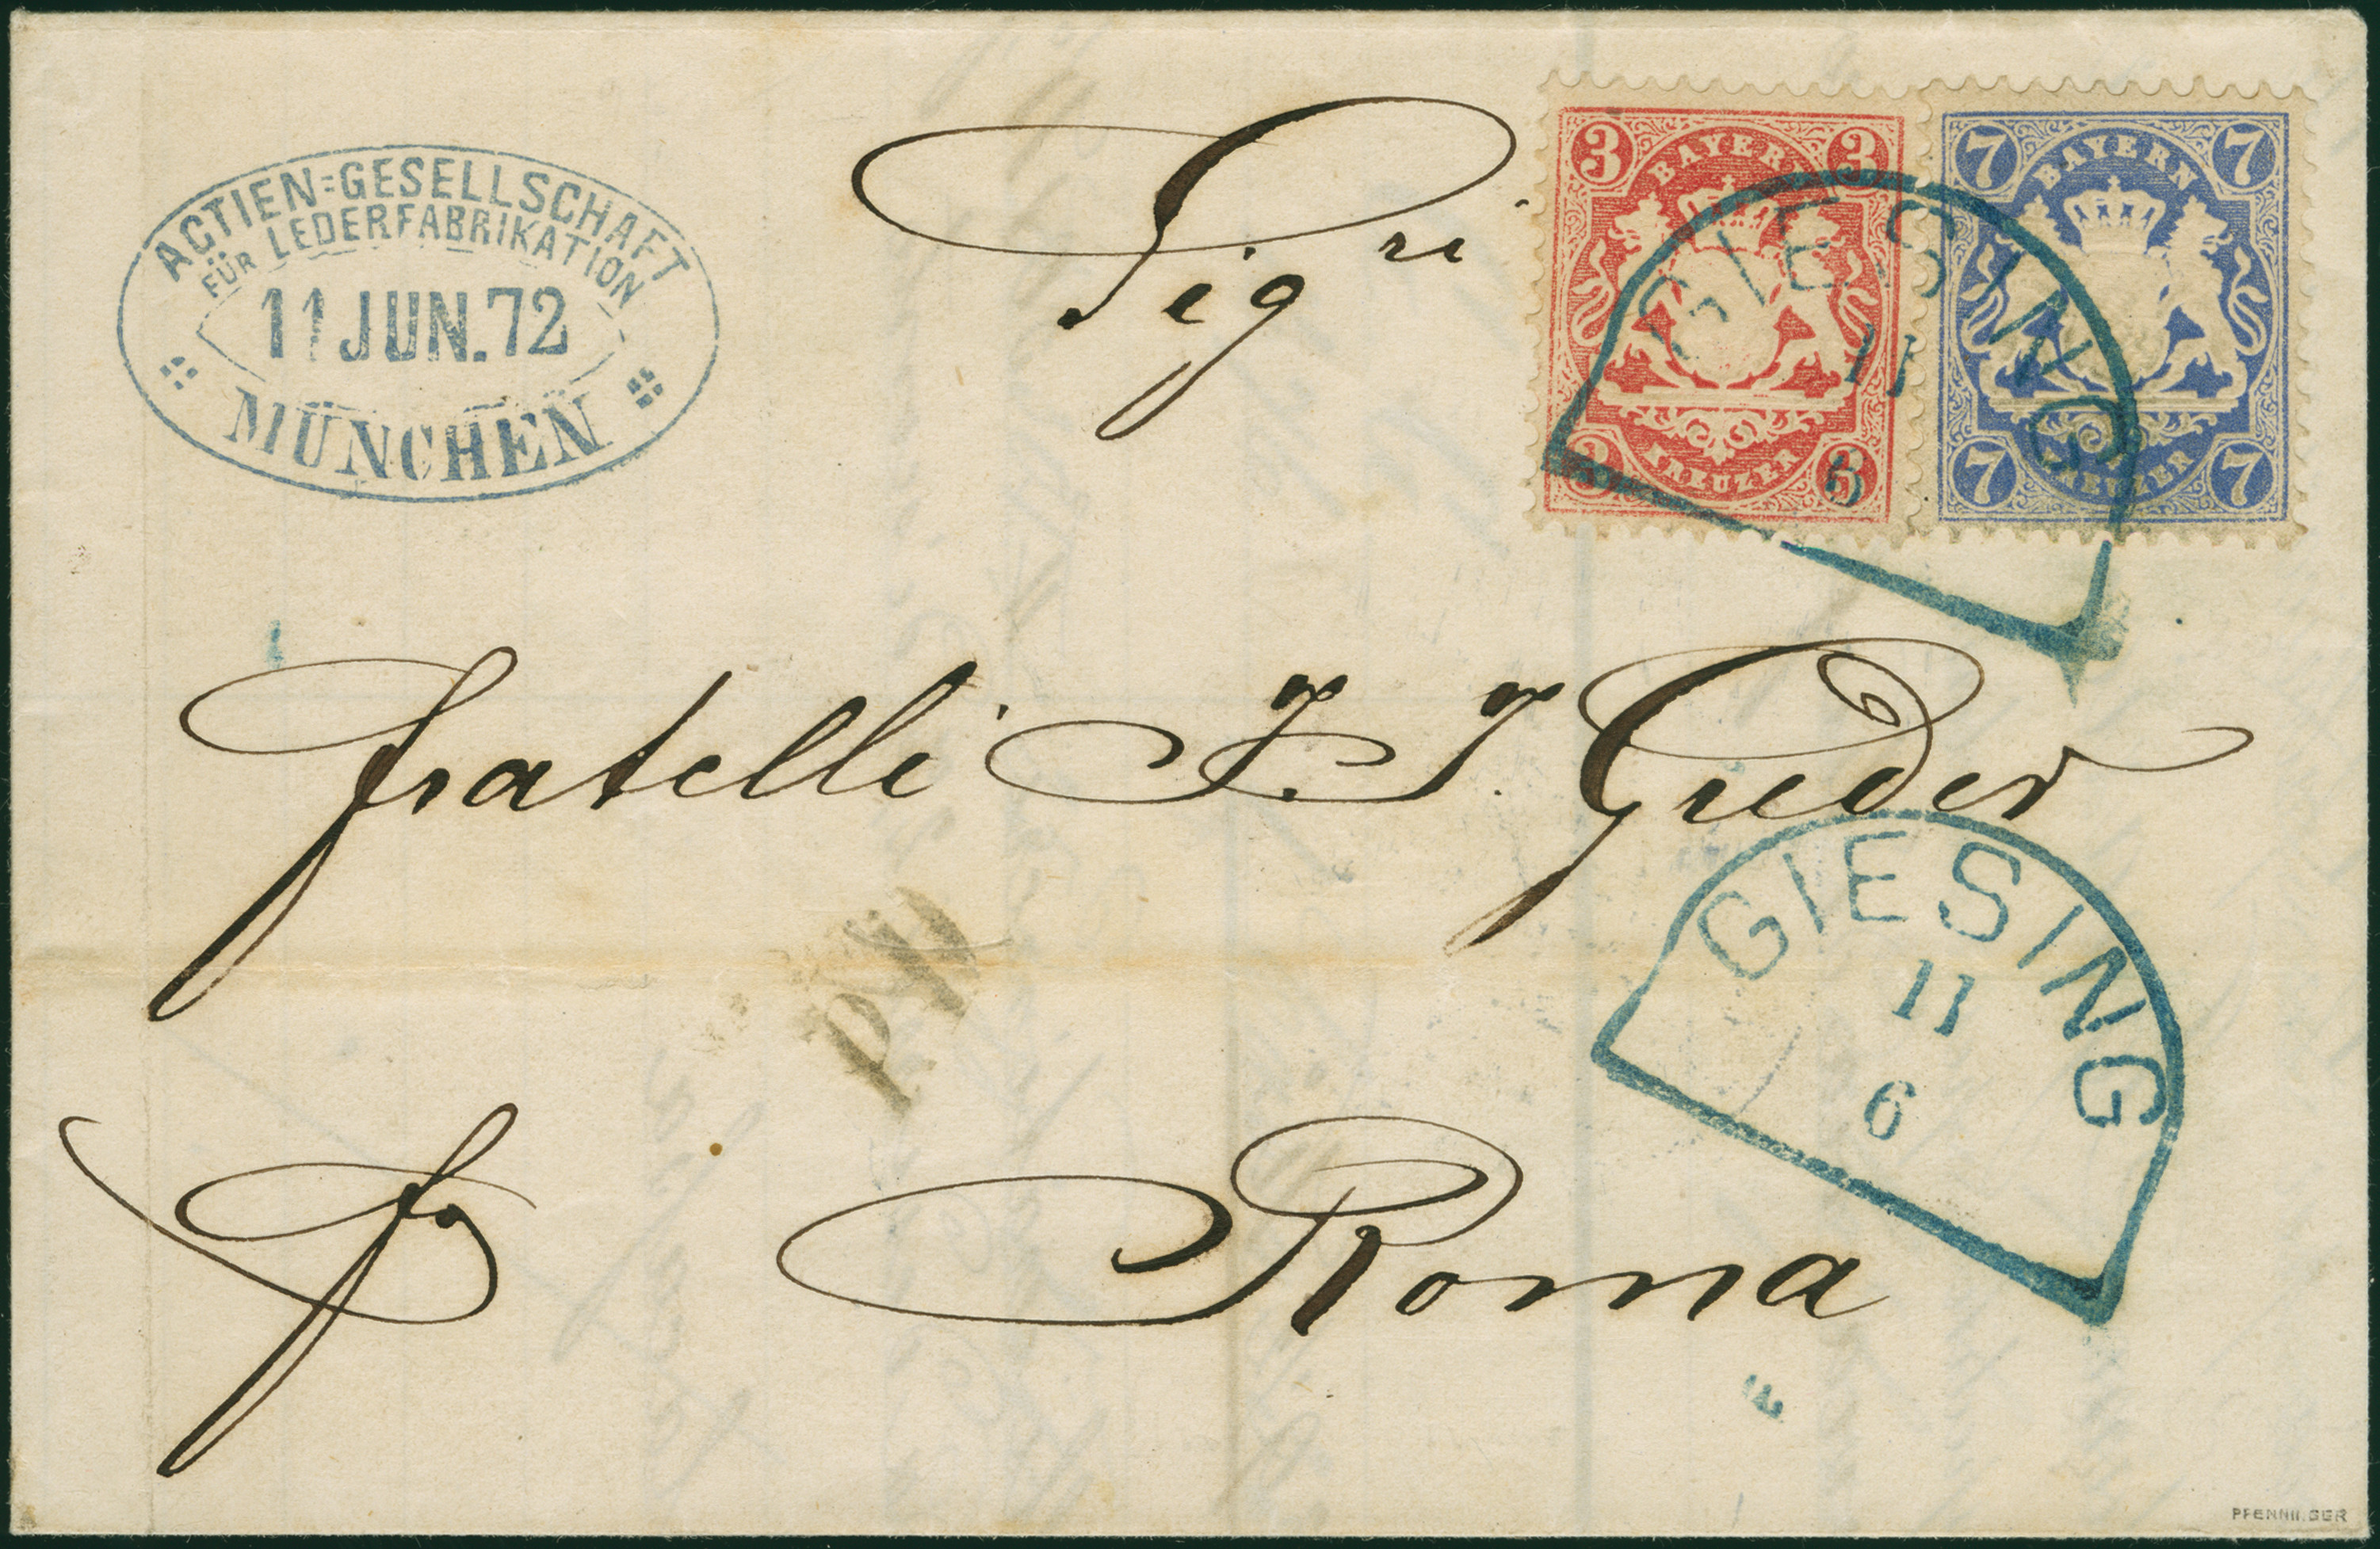 ACTIEN=GESELLSCHAFT
FÜR LEDERFABRIKATION
11 JUN. 72
MÜNCHEN
Sig ri
3 3
BAYERN
KREUZER
3 3
7 7
BAYERN
KREUZER
7 7
GIESING
11
6
fratelli J. J. Grieder
GIESING
11
6
P.D.
fo Roma